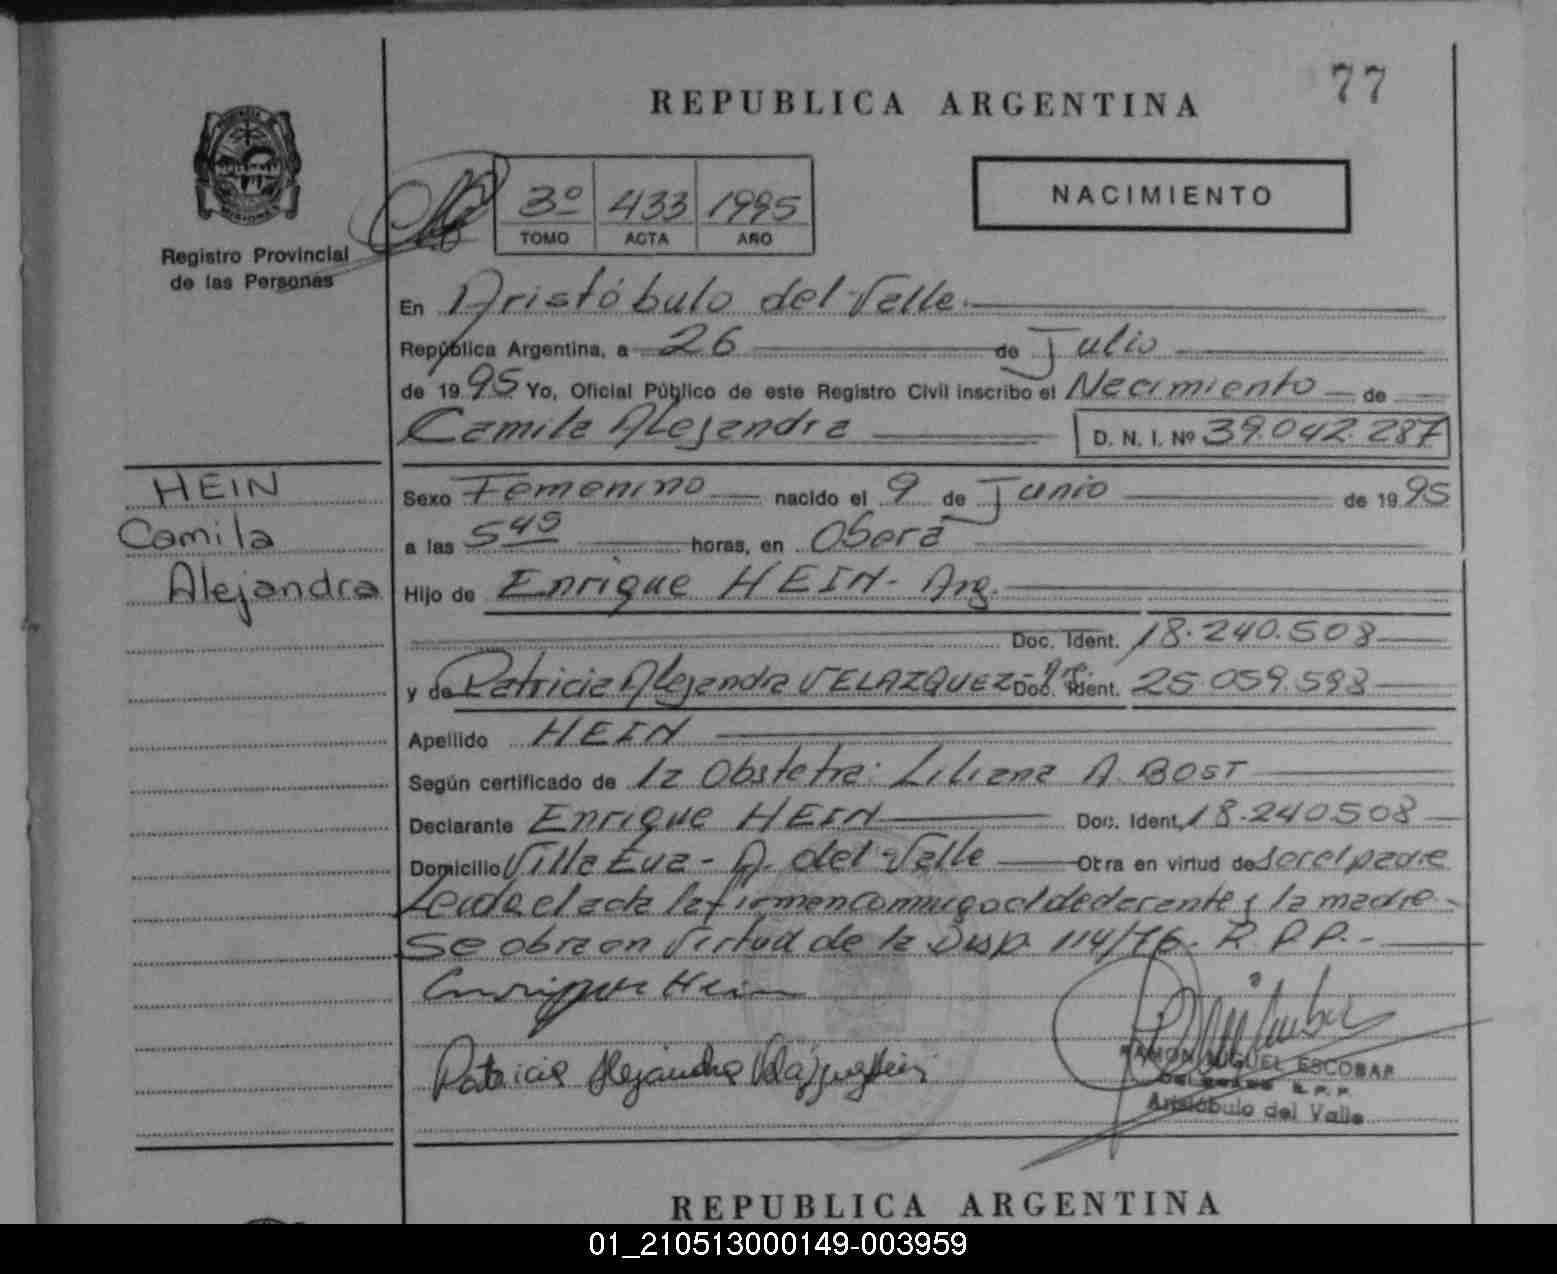 77
REPUBLICA ARGENTINA
3º 433 1995
TOMO ACTA AÑO
NACIMIENTO
Registro Provincial
de las Personas
En Aristóbulo del Valle.
República Argentina, a 26 de Julio
de 1995 Yo, Oficial Público de este Registro Civil inscribo el Nacimiento de
Camila Alejandra D. N. I. Nº 39.042.287
HEIN
Camila
Alejandra
Sexo Femenino nacido el 9 de Junio de 1995
a las 5 45 horas, en Oberá
Hijo de Enrique HEIN - Arg.
Doc. Ident. 18.240.508
y de Patricia Alejandra VELAZQUEZ - Doc. Ident. 25.059.593
Apellido HEIN
Según certificado de la Obstetra: Liliana A. BOST
Declarante Enrique HEIN Doc. Ident. 18.240508
Domicilio Villa Eva - A. del Valle Obra en virtud de ser el padre
Leida el acta la firman conmigo el declarante y la madre -
Se obra en virtud de la Disp. 114/76. R. P. P. -
Enrique Hein
Patricia Alejandra
RAMON MIGUEL ESCOBAR
R. P. P.
Aristóbulo del Valle
REPUBLICA ARGENTINA
01_210513000149-003959